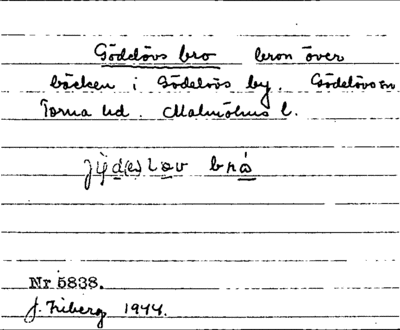 Gödelövs bro bron över
bäcken i Gödelövs by. Gödelövs sn
Torna hd. Malmöhus l.
brå
Nr 5838.
J. Friberg 1944.